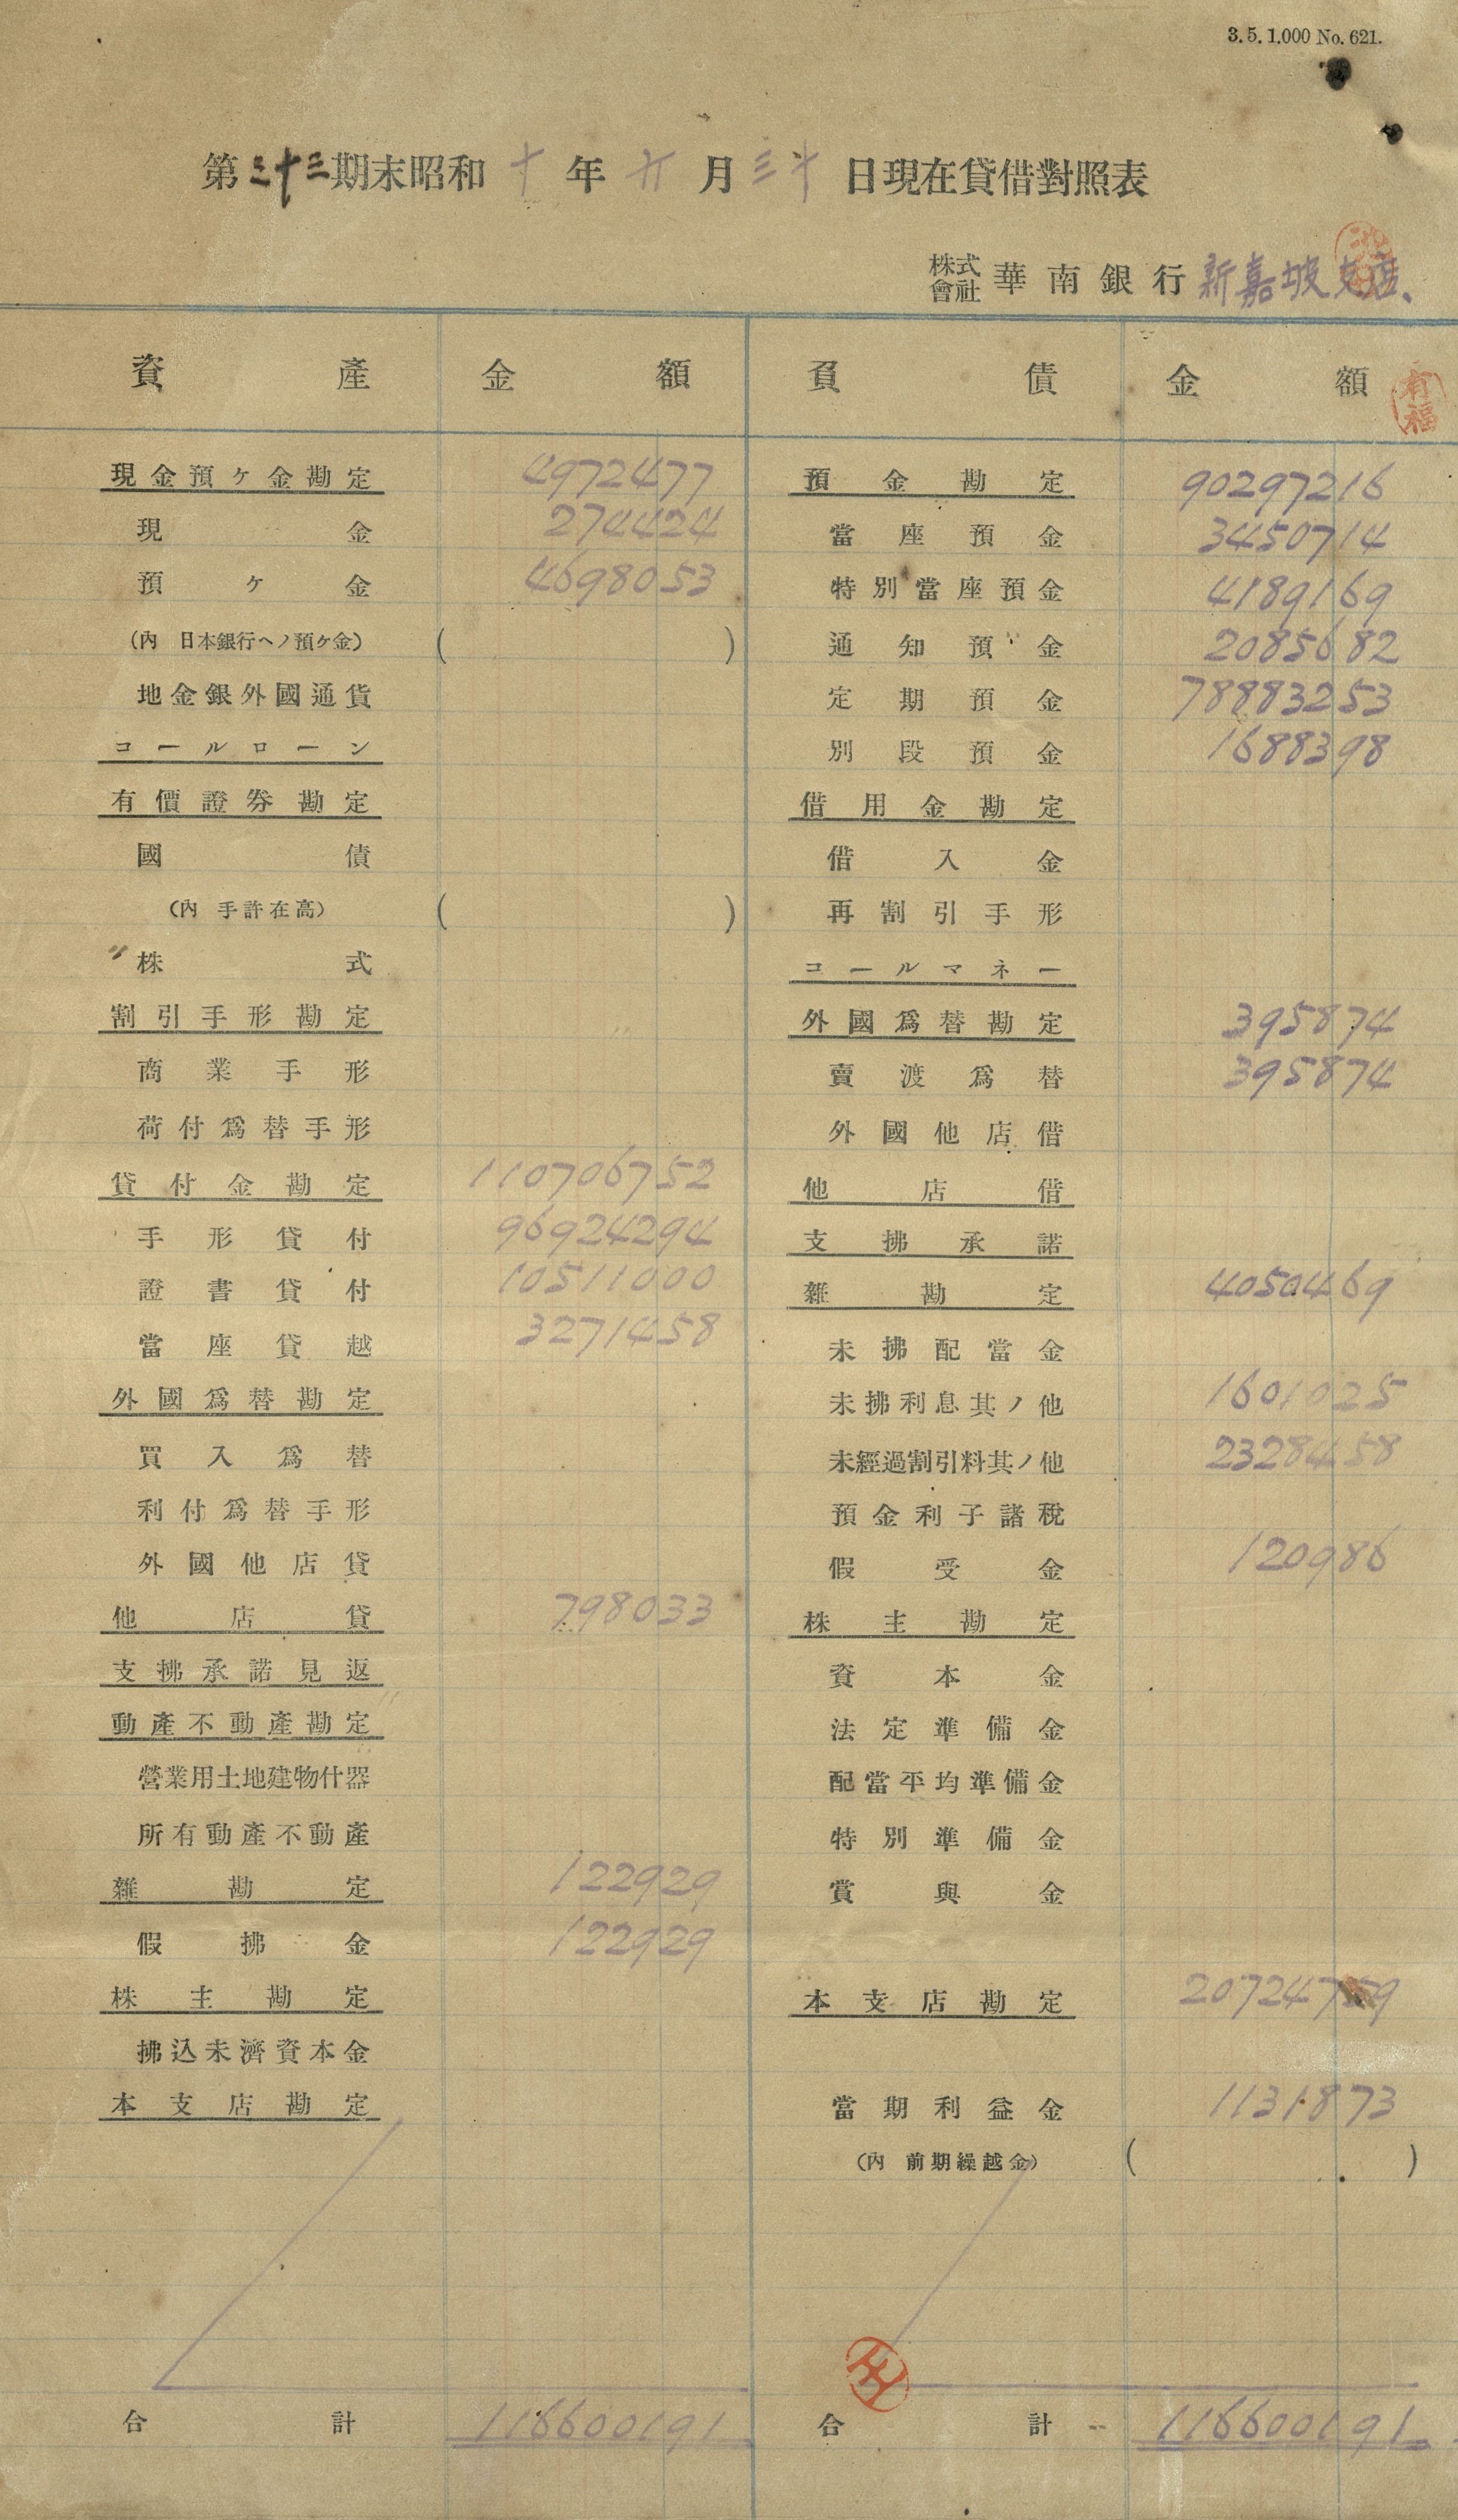 3.5.1,000 No. 621.
第三十三期末昭和十年六月三十日現在貸借對照表
株式會社 華南銀行 新嘉坡支店.
資產 金額
現金預ケ金勘定 4972477
現金 274424
預ケ金 4698053
(内 日本銀行ヘノ預ケ金) ( )
地金銀外國通貨
コールローン
有價證券勘定
國債
(内 手許在高) ( )
株式
割引手形勘定
商業手形
荷付爲替手形
貸付金勘定 110706752
手形貸付 96924294
證書貸付 10511000
當座貸越 3271458
外國爲替勘定
買入爲替
利付爲替手形
外國他店貸
他店貸 798033
支拂承諾見返
動產不動產勘定
營業用土地建物什器
所有動產不動產
雜勘定 122929
假拂金 122929
株主勘定
拂込未濟資本金
本支店勘定
合計 116600191
負債 金額
有福
預金勘定 90297216
當座預金 3450714
特別當座預金 4189169
通知預金 2085682
定期預金 78883253
別段預金 1688398
借用金勘定
借入金
再割引手形
コールマネー
外國爲替勘定 395874
賣渡爲替 395874
外國他店借
他店借
支拂承諾
雜勘定 4050469
未拂配當金
未拂利息其ノ他 1601025
未經過割引料其ノ他 2328458
預金利子諸稅
假受金 120986
株主勘定
資本金
法定準備金
配當平均準備金
特別準備金
賞與金
本支店勘定 20724759
當期利益金 1131873
(内 前期繰越金) ( )
王
合計 116600191